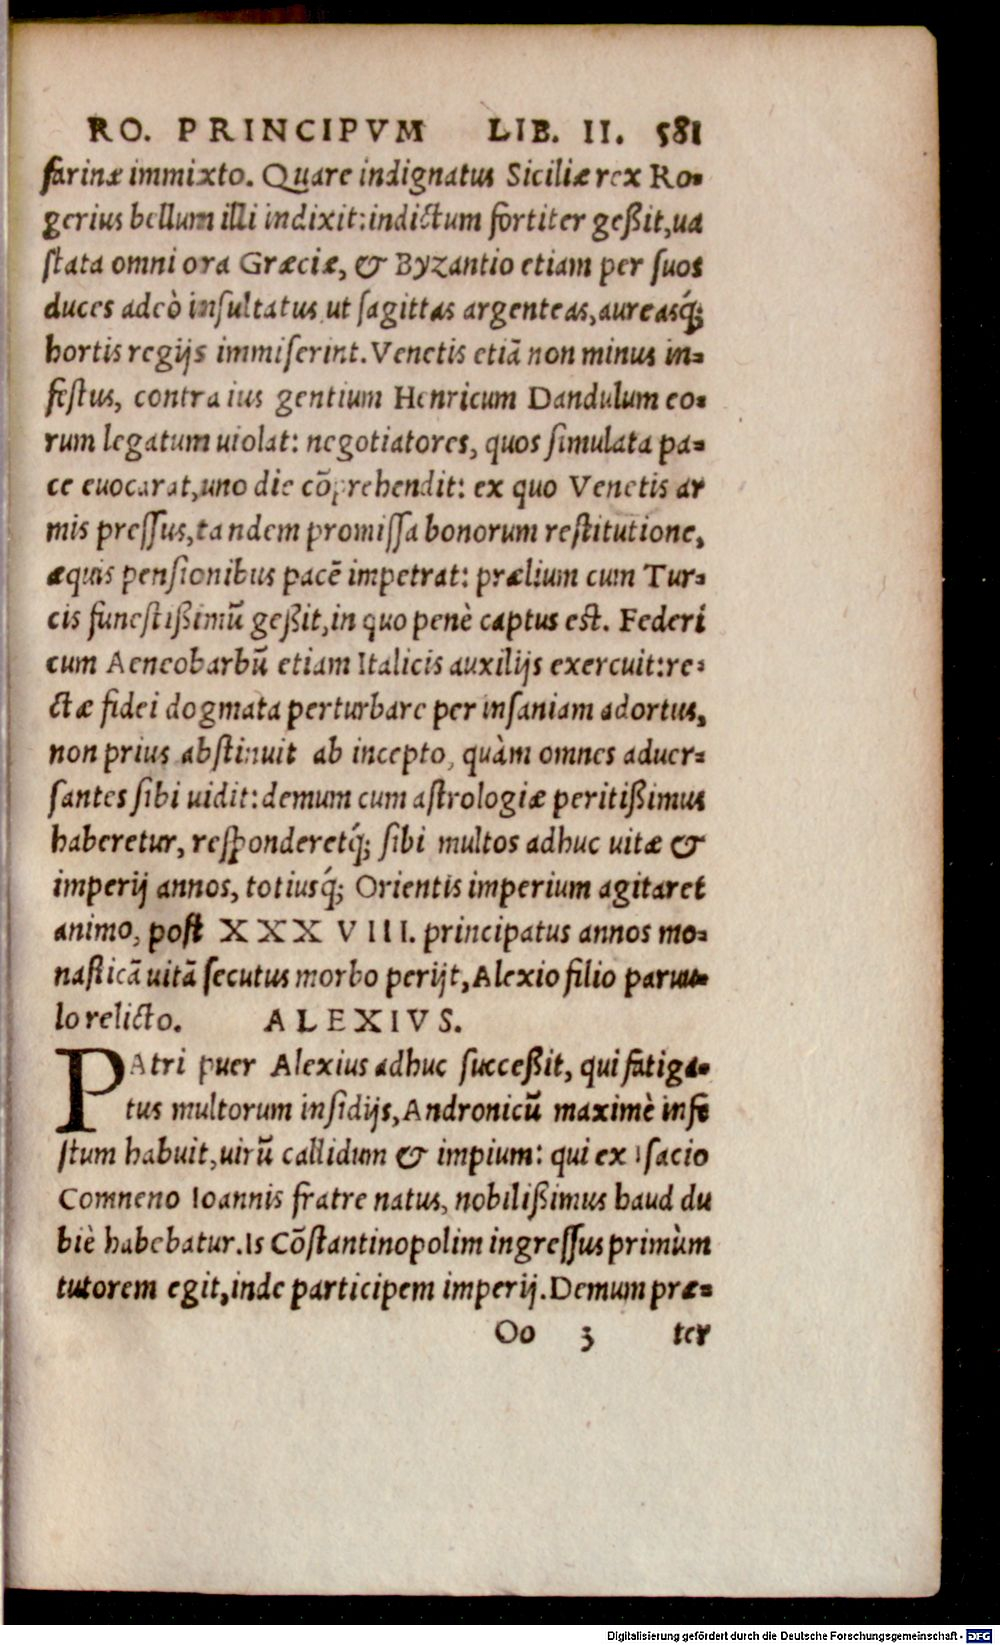 RO. PRINCIPVM LIB. II. 581
farinæ immixto. Quare indignatus Siciliæ rex Ro-
gerius bellum illi indixit: indictum fortiter geßit, ua
ſtata omni ora Græciæ, & Byzantio etiam per ſuos
duces adeò inſultatus ut ſagittas argenteas, aureasq́;
hortis regijs immiſerint. Venetis etiã non minus in-
feſtus, contra ius gentium Henricum Dandulum eo-
rum legatum uiolat: negotiatores, quos ſimulata pa-
ce euocarat, uno die cõprehendit: ex quo Venetis ar
mis preſſus, tandem promiſſa bonorum reſtitutione,
æquis penſionibus pacẽ impetrat: prælium cum Tur-
cis funeſtißimũ geßit, in quo penè captus eſt. Federi
cum Aeneobarbũ etiam Italicis auxilijs exercuit: re-
ctæ fidei dogmata perturbare per inſaniam adortus,
non prius abſtinuit ab incepto, quàm omnes aduer-
ſantes ſibi uidit: demum cum aſtrologiæ peritißimus
haberetur, reſponderetq́; ſibi multos adhuc uitæ &
imperij annos, totiusq́; Orientis imperium agitaret
animo, poſt XXXVIII. principatus annos mo-
naſticã uitã ſecutus morbo perijt, Alexio filio paruu-
lo relicto. ALEXIVS.
PAtri puer Alexius adhuc ſucceßit, qui fatiga-
tus multorum inſidijs, Andronicũ maximè infe
ſtum habuit, uirũ callidum & impium: qui ex Iſacio
Comneno Ioannis fratre natus, nobilißimus haud du
biè habebatur. Is Cõſtantinopolim ingreſſus primùm
tutorem egit, inde participem imperij. Demum præ-
Oo 3 ter
Digitalisierung gefördert durch die Deutsche Forschungsgemeinschaft - DFG